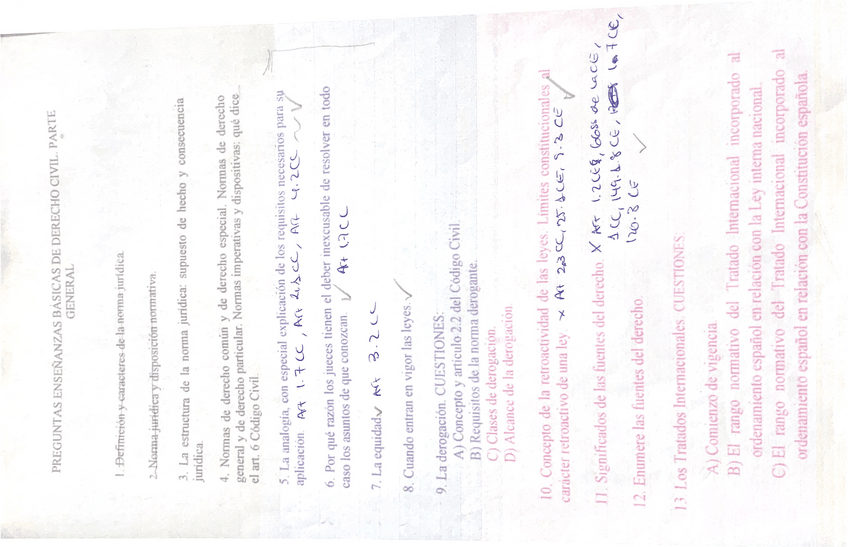 PREGUNTAS ENSEÑANZAS BASICAS DE DERECHO CIVIL. PARTE
GENERAL
1. Definición y caracteres de la norma jurídica.
2. Norma jurídica y disposición normativa.
3. La estructura de la norma jurídica: supuesto de hecho y consecuencia
jurídica.
4. Normas de derecho común y de derecho especial. Normas de derecho
general y de derecho particular. Normas imperativas y dispositivas: qué dice
el art. 6 Código Civil.
5. La analogía, con especial explicación de los requisitos necesarios para su
aplicación. Art 1.7 CC, Art 4.1 CC, Art 4.2 CC
6. Por qué razón los jueces tienen el deber inexcusable de resolver en todo
caso los asuntos de que conozcan. Art 1.7 CC
7. La equidad Art 3.2 CC
8. Cuando entran en vigor las leyes.
9. La derogación. CUESTIONES:
A) Concepto y artículo 2.2 del Código Civil.
B) Requisitos de la norma derogante.
C) Clases de derogación.
D) Alcance de la derogación
10. Concepto de la retroactividad de las leyes. Límites constitucionales al
carácter retroactivo de una ley x Art 2.3 CC, 25.1 CE, 9.3 CE
11. Significados de las fuentes del derecho. X Art 1.2 CE, de la CE,
1 CC, 149.1.8 CE, 1.7 CE,
120.3 CE
12. Enumere las fuentes del derecho.
13. Los Tratados Internacionales. CUESTIONES:
A) Comienzo de vigencia.
B) El rango normativo del Tratado Internacional incorporado al
ordenamiento español en relación con la Ley interna nacional.
C) El rango normativo del Tratado Internacional incorporado al
ordenamiento español en relación con la Constitución española.